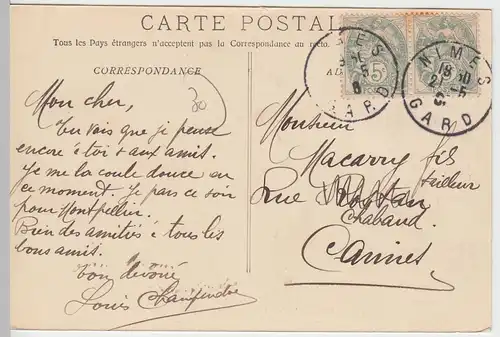 CARTE POSTALE
Tous les Pays étrangers n'acceptent pas la Correspondance au recto.
CORRESPONDANCE
Mon cher,
Tu vois que je pense
encore à toi & aux amis.
Je me la coule douce en
ce moment. Je pars ce soir
pour Montpellier.
Bien des amitiés à tous les
bons amis.
ton dévoué
Louis
30
NIMES
GARD
5
NIMES
GARD
Monsieur
Macarry fils
tailleur
Rue
Chabaud.
Cannes